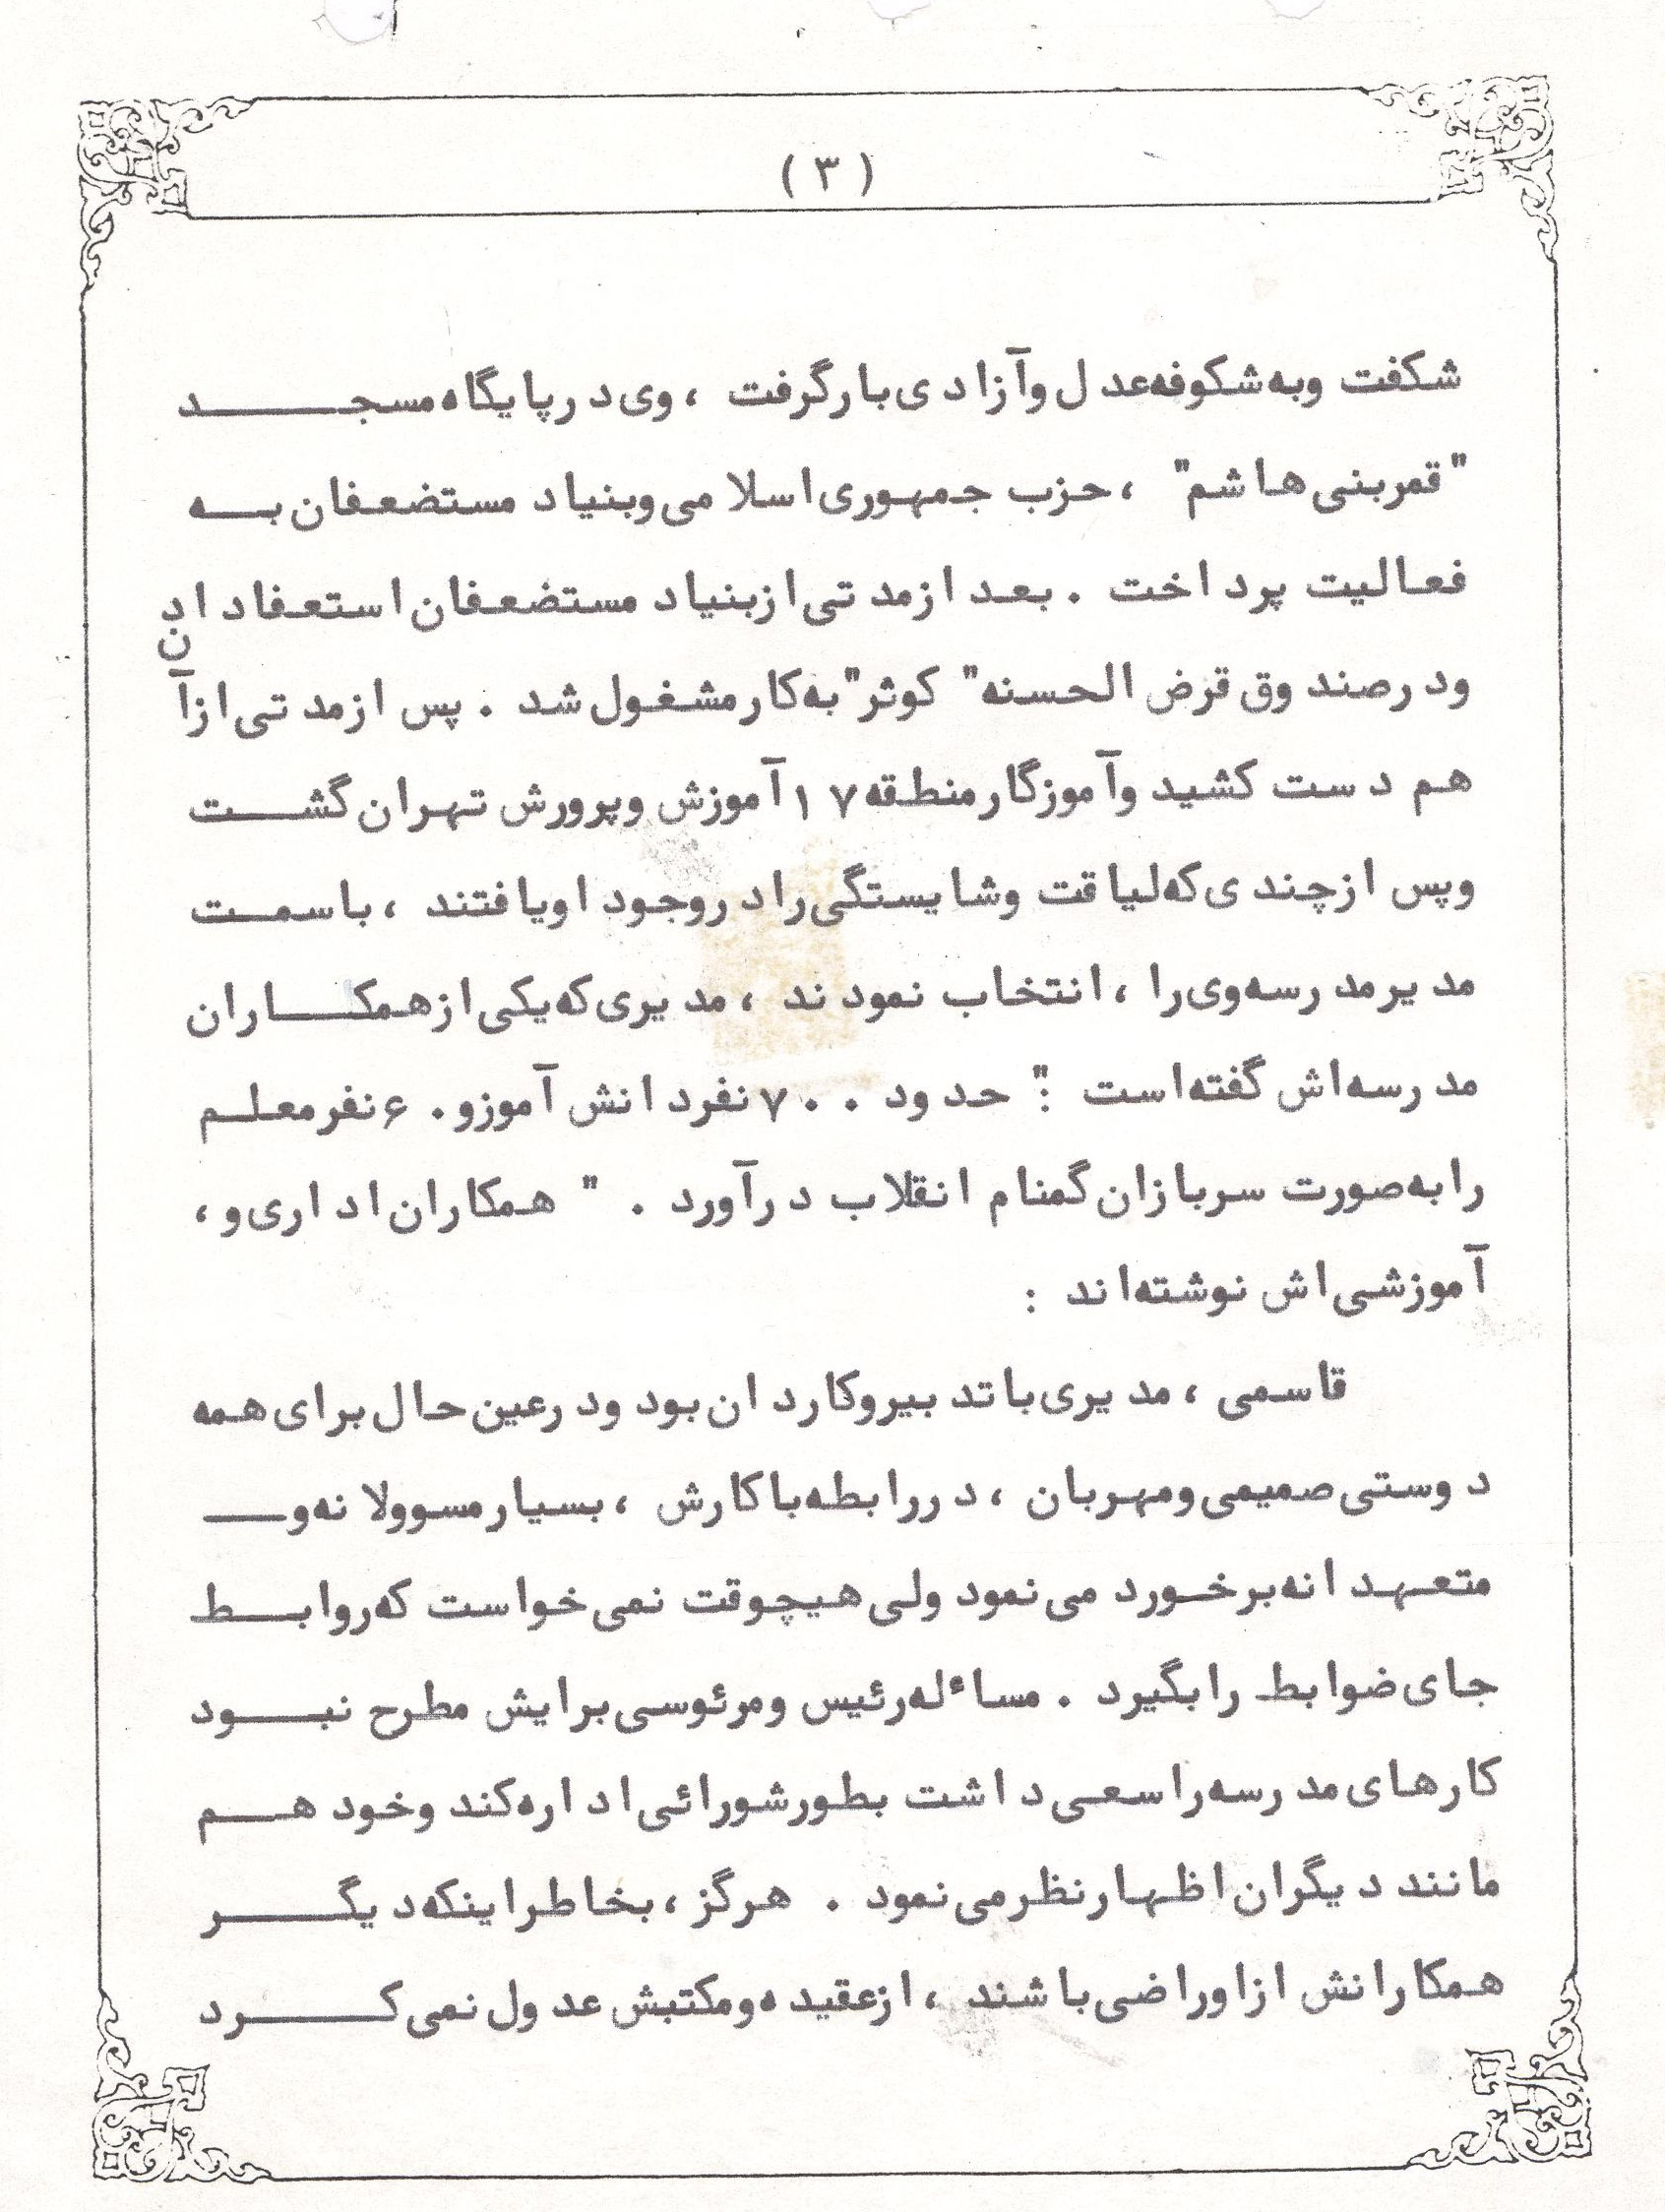 (۳)
شکفت وبه شکوفه عدل وآزادی بارگرفت ، وی درپایگاه مسجد
"قمربنی هاشم" ، حزب جمهوری اسلامی وبنیاد مستضعفان به
فعالیت پرداخت . بعد ازمدتی ازبنیاد مستضعفان استعفاداد
ودرصندوق قرض الحسنه" کوثر"به کارمشغول شد . پس ازمدتی ازآن
هم دست کشید وآموزگارمنطقه ۱۷ آموزش وپرورش تهران گشت
وپس ازچندی که لیاقت وشایستگی رادروجود اویافتند ، باسمت
مدیرمدرسه وی را ، انتخاب نمودند ، مدیری که یکی ازهمکاران
مدرسه اش گفته است :" حدود ۷۰۰ نفردانش آموزو ۶۰ نفرمعلم
رابه صورت سربازان گمنام انقلاب درآورد . " همکاران اداری و ،
آموزشی اش نوشته اند :
قاسمی ، مدیری باتدبیروکاردان بود ودرعین حال برای همه
دوستی صمیمی ومهربان ، دررابطه باکارش ، بسیارمسوولانه و
متعهدانه برخورد می نمود ولی هیچوقت نمی خواست که روابط
جای ضوابط رابگیرد . مساءله رئیس ومرئوسی برایش مطرح نبود
کارهای مدرسه راسعی داشت بطورشورائی اداره کند وخود هم
مانند دیگران اظهارنظرمی نمود . هرگز ، بخاطراینکه دیگر
همکارانش ازاوراضی باشند ، ازعقیده ومکتبش عدول نمی کرد